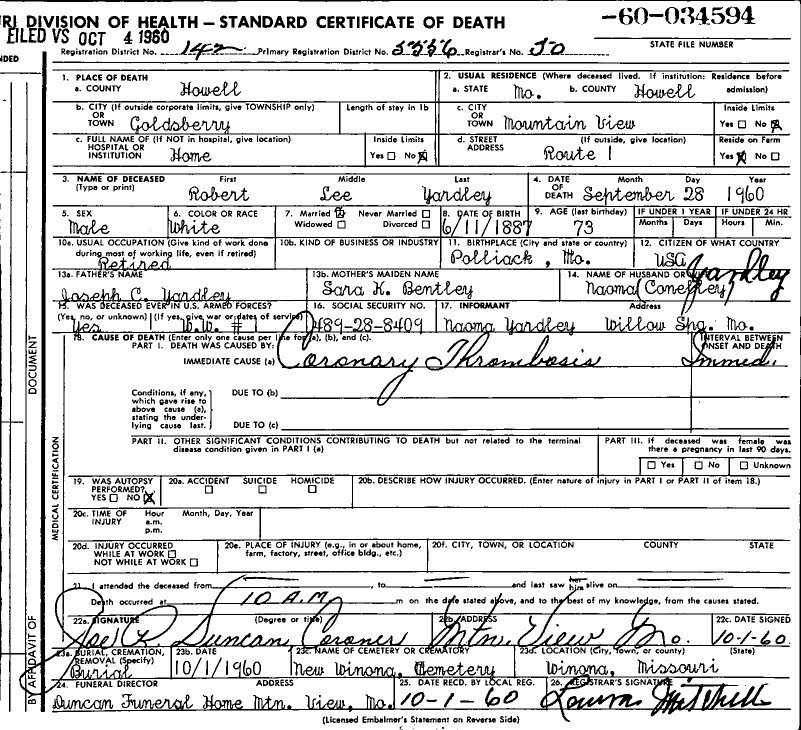 RI DIVISION OF HEALTH — STANDARD CERTIFICATE OF DEATH
-60-034594
FILED VS OCT 4 1960
Registration District No. 142 Primary Registration District No. 5556 Registrar's No. 50 STATE FILE NUMBER
NDED
1. PLACE OF DEATH
a. COUNTY Howell
2. USUAL RESIDENCE (Where deceased lived. If institution: Residence before admission)
a. STATE Mo. b. COUNTY Howell
b. CITY (If outside corporate limits, give TOWNSHIP only) OR TOWN Goldsberry
Length of stay in 1b
c. CITY OR TOWN Mountain View
Inside Limits Yes ☐ No ☒
c. FULL NAME OF (If NOT in hospital, give location) HOSPITAL OR INSTITUTION Home
Inside Limits Yes ☐ No ☒
d. STREET ADDRESS (If outside, give location) Route 1
Reside on Farm Yes ☒ No ☐
3. NAME OF DECEASED (Type or print) First Robert Middle Lee Last Yardley
4. DATE OF DEATH Month Day Year September 28 1960
5. SEX Male
6. COLOR OR RACE White
7. Married ☒ Never Married ☐ Widowed ☐ Divorced ☐
8. DATE OF BIRTH 6/11/1887
9. AGE (last birthday) 73
IF UNDER 1 YEAR Months Days
IF UNDER 24 HR Hours Min.
10a. USUAL OCCUPATION (Give kind of work done during most of working life, even if retired) Retired
10b. KIND OF BUSINESS OR INDUSTRY
11. BIRTHPLACE (City and state or country) Polliack, Mo.
12. CITIZEN OF WHAT COUNTRY USA
13a. FATHER'S NAME Joseph C. Yardley
13b. MOTHER'S MAIDEN NAME Sara K. Bentley
14. NAME OF HUSBAND OR Naoma Yardley
15. WAS DECEASED EVER IN U.S. ARMED FORCES? (Yes, no, or unknown) (If yes, give war or dates of service) Yes W.W. # 1
16. SOCIAL SECURITY NO. 489-28-8409
17. INFORMANT Address Naoma Yardley Willow Spg. Mo.
18. CAUSE OF DEATH (Enter only one cause per line for (a), (b), and (c).
PART I. DEATH WAS CAUSED BY:
IMMEDIATE CAUSE (a) Coronary Thrombosis
INTERVAL BETWEEN ONSET AND DEATH Immed.
Conditions, if any, which gave rise to above cause (a), stating the underlying cause last.
DUE TO (b)
DUE TO (c)
PART II. OTHER SIGNIFICANT CONDITIONS CONTRIBUTING TO DEATH but not related to the terminal disease condition given in PART I (a)
PART III. If deceased was female was there a pregnancy in last 90 days.
☐ Yes ☐ No ☐ Unknown
19. WAS AUTOPSY PERFORMED? YES ☐ NO ☒
20a. ACCIDENT ☐ SUICIDE ☐ HOMICIDE ☐
20b. DESCRIBE HOW INJURY OCCURRED. (Enter nature of injury in PART I or PART II of item 18.)
20c. TIME OF INJURY Hour a.m. p.m. Month, Day, Year
20d. INJURY OCCURRED WHILE AT WORK ☐ NOT WHILE AT WORK ☐
20e. PLACE OF INJURY (e.g., in or about home, farm, factory, street, office bldg., etc.)
20f. CITY, TOWN, OR LOCATION COUNTY STATE
21. I attended the deceased from to and last saw her him alive on
Death occurred at 10 A.M m on the date stated above, and to the best of my knowledge, from the causes stated.
22a. SIGNATURE (Degree or title) Joe R. Duncan Coroner
22b. ADDRESS Mtn. View Mo.
22c. DATE SIGNED 10-1-60.
23a. BURIAL, CREMATION, REMOVAL (Specify) Burial
23b. DATE 10/1/1960
23c. NAME OF CEMETERY OR CREMATORY New Winona, Cemetery
23d. LOCATION (City, town, or county) (State) Winona, Missouri
24. FUNERAL DIRECTOR ADDRESS Duncan Funeral Home Mtn. View, Mo.
25. DATE RECD. BY LOCAL REG. 10-1-60
26. REGISTRAR'S SIGNATURE Laura Mitchell
(Licensed Embalmer's Statement on Reverse Side)
DOCUMENT
MEDICAL CERTIFICATION
BY AFFIDAVIT OF